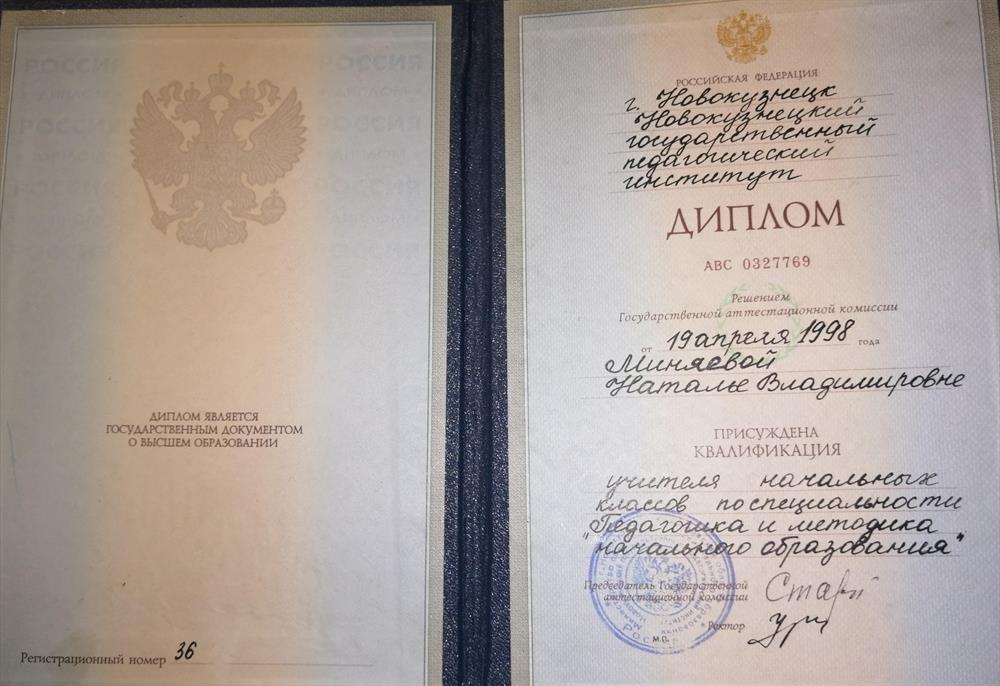 ДИПЛОМ ЯВЛЯЕТСЯ
ГОСУДАРСТВЕННЫМ ДОКУМЕНТОМ
О ВЫСШЕМ ОБРАЗОВАНИИ
Регистрационный номер 36
РОССИЙСКАЯ ФЕДЕРАЦИЯ
г. Новокузнецк
Новокузнецкий
государственный
педагогический
институт
ДИПЛОМ
АВС 0327769
Решением
Государственной аттестационной комиссии
от 19 апреля 1998 года
Миняевой
Наталье Владимировне
ПРИСУЖДЕНА
КВАЛИФИКАЦИЯ
учителя начальных
классов по специальности
"Педагогика и методика
начального образования"
Председатель Государственной
аттестационной комиссии
Ректор
М.П.
РОССИЯ